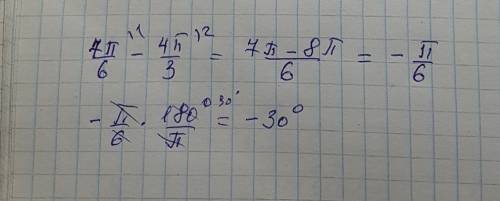 7π/6 ⁾¹ - 4π/3 ⁾² = 7π - 8π/6 = - π/6
- π/6 · 180°/π ³⁰° = - 30°